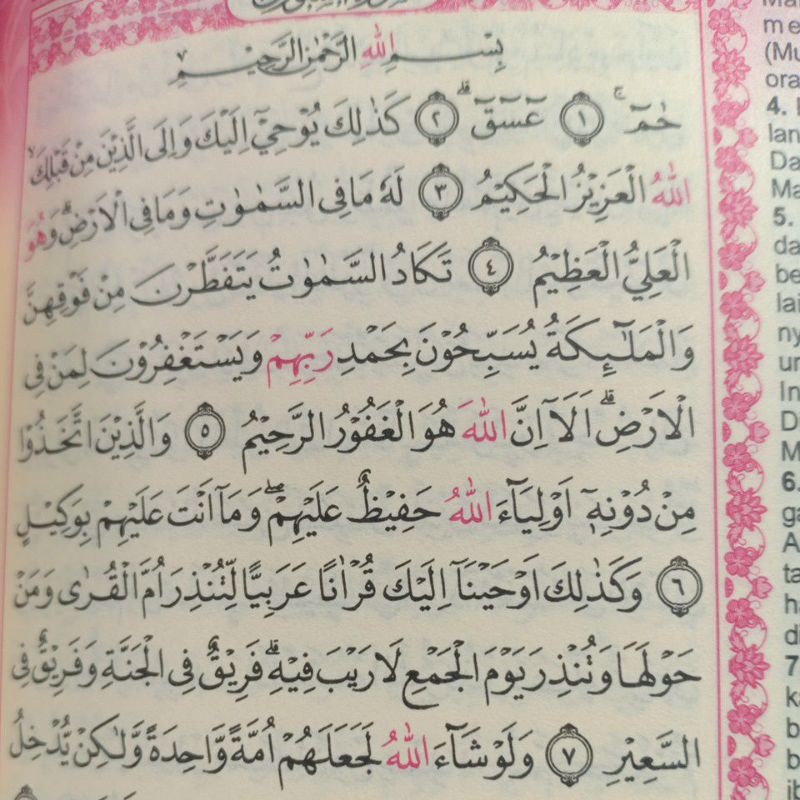 بِسْمِ اللهِ الرَّحْمٰنِ الرَّحِيْمِ
حٰمۤ ۚ ﴿١﴾ عۤسۤقۤ ۗ ﴿٢﴾ كَذٰلِكَ يُوْحِيْٓ اِلَيْكَ وَاِلَى الَّذِيْنَ مِنْ قَبْلِكَ ۙ
اللهُ الْعَزِيْزُ الْحَكِيْمُ ﴿٣﴾ لَهٗ مَا فِى السَّمٰوٰتِ وَمَا فِى الْاَرْضِ ۗ وَهُوَ
الْعَلِيُّ الْعَظِيْمُ ﴿٤﴾ تَكَادُ السَّمٰوٰتُ يَتَفَطَّرْنَ مِنْ فَوْقِهِنَّ
وَالْمَلٰۤىِٕكَةُ يُسَبِّحُوْنَ بِحَمْدِ رَبِّهِمْ وَيَسْتَغْفِرُوْنَ لِمَنْ فِى
الْاَرْضِ ۗ اَلَآ اِنَّ اللهَ هُوَ الْغَفُوْرُ الرَّحِيْمُ ﴿٥﴾ وَالَّذِيْنَ اتَّخَذُوْا
مِنْ دُوْنِهٖٓ اَوْلِيَاۤءَ اللهُ حَفِيْظٌ عَلَيْهِمْ ۖ وَمَآ اَنْتَ عَلَيْهِمْ بِوَكِيْلٍ
﴿٦﴾ وَكَذٰلِكَ اَوْحَيْنَآ اِلَيْكَ قُرْاٰنًا عَرَبِيًّا لِّتُنْذِرَ اُمَّ الْقُرٰى وَمَنْ
حَوْلَهَا وَتُنْذِرَ يَوْمَ الْجَمْعِ لَا رَيْبَ فِيْهِ ۗ فَرِيْقٌ فِى الْجَنَّةِ وَفَرِيْقٌ فِى
السَّعِيْرِ ﴿٧﴾ وَلَوْ شَاۤءَ اللهُ لَجَعَلَهُمْ اُمَّةً وَّاحِدَةً وَّلٰكِنْ يُّدْخِلُ
4.
5.
6.
7